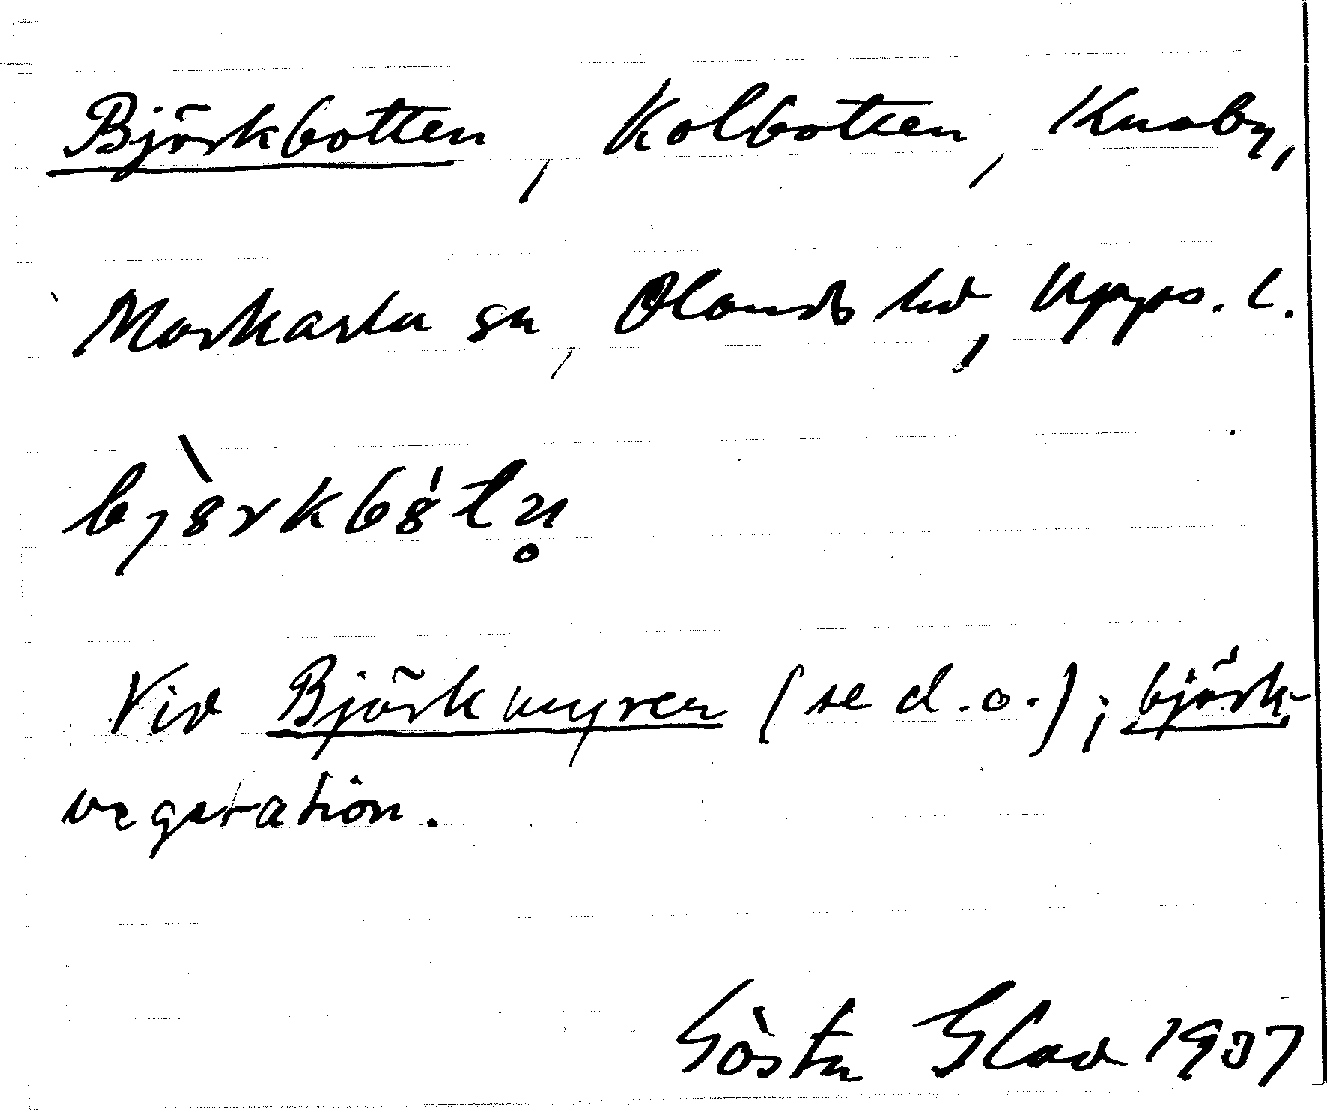 Björkbotten, Kolbotten, Knaby,
Morkarla sn, Olands hd, Upps. l.
bjò̈rkbȯ́tn̥
Vid Björkmyren (se d.o.); björk-
vegetation.
Gösta Glad 1937